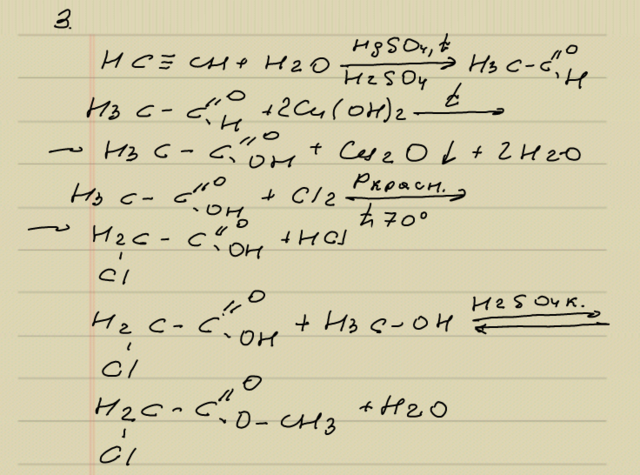 3.
HC≡CH + H2O HgSO4, t H2SO4 H3C-C=O H
H3C-C=O H + 2Cu(OH)2 t
→ H3C-C=O OH + Cu2O↓ + 2H2O
H3C-C=O OH + Cl2 Pкрасн. t 70°
→ H2C-C=O OH + HCl
Cl
H2C-C=O OH + H3C-OH H2SO4к.
Cl
H2C-C=O O-CH3 + H2O
Cl